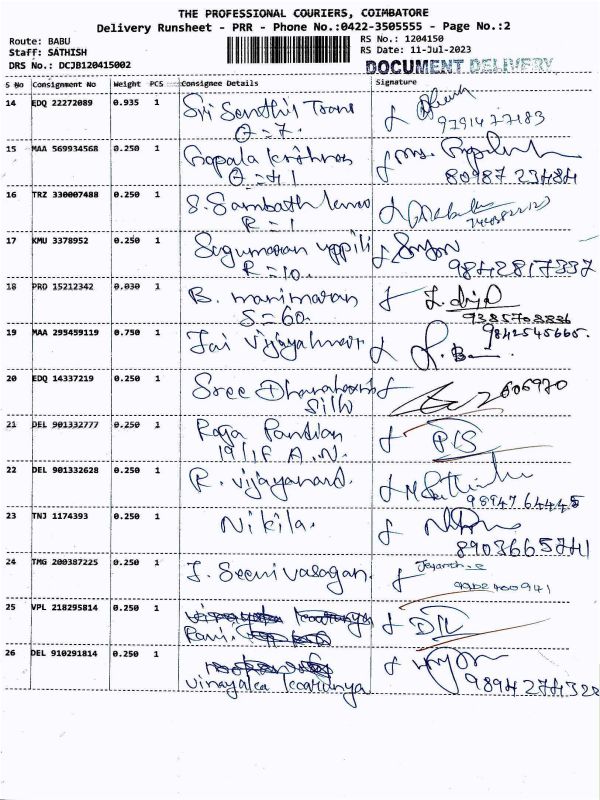 THE PROFESSIONAL COURIERS, COIMBATORE
Delivery Runsheet - PRR - Phone No.:0422-3505555 - Page No.:2
Route: BABU
Staff: SATHISH
DRS No.: DCJB120415002
RS No.: 1204150
RS Date: 11-Jul-2023
DOCUMENT DELIVERY
S No Consignment No Weight PCS Consignee Details Signature
14 EDQ 22272089 0.935 1 Sri Senthil Trans
O = 7. 9791477183
15 MAA 569934568 0.250 1 Gopala krishnan
O = 41 80987 23484
16 TRZ 330007488 0.250 1 S. Sambath kumar
R = 1
17 KMU 3378952 0.250 1 Sugumaran uppili
R = 10. 9842817337
18 PRO 15212342 0.030 1 B. manimaran
S = 60. 9385708836
19 MAA 295459119 0.750 1 Jai Vijayakumar 9842545665.
20 EDQ 14337219 0.250 1 Sree 606970
Silk
21 DEL 901332777 0.250 1 Raja Pandian
19/1F A.N.
22 DEL 901332628 0.250 1 R. Vijayanand.
98947 64445
23 TNJ 1174393 0.250 1 Nikila.
8903665741
24 TMG 200387225 0.250 1 J. Seenivasagan.
9902400941
25 VPL 218295814 0.250 1
Ravi.
26 DEL 910291814 0.250 1
Vinayaka 9894274322